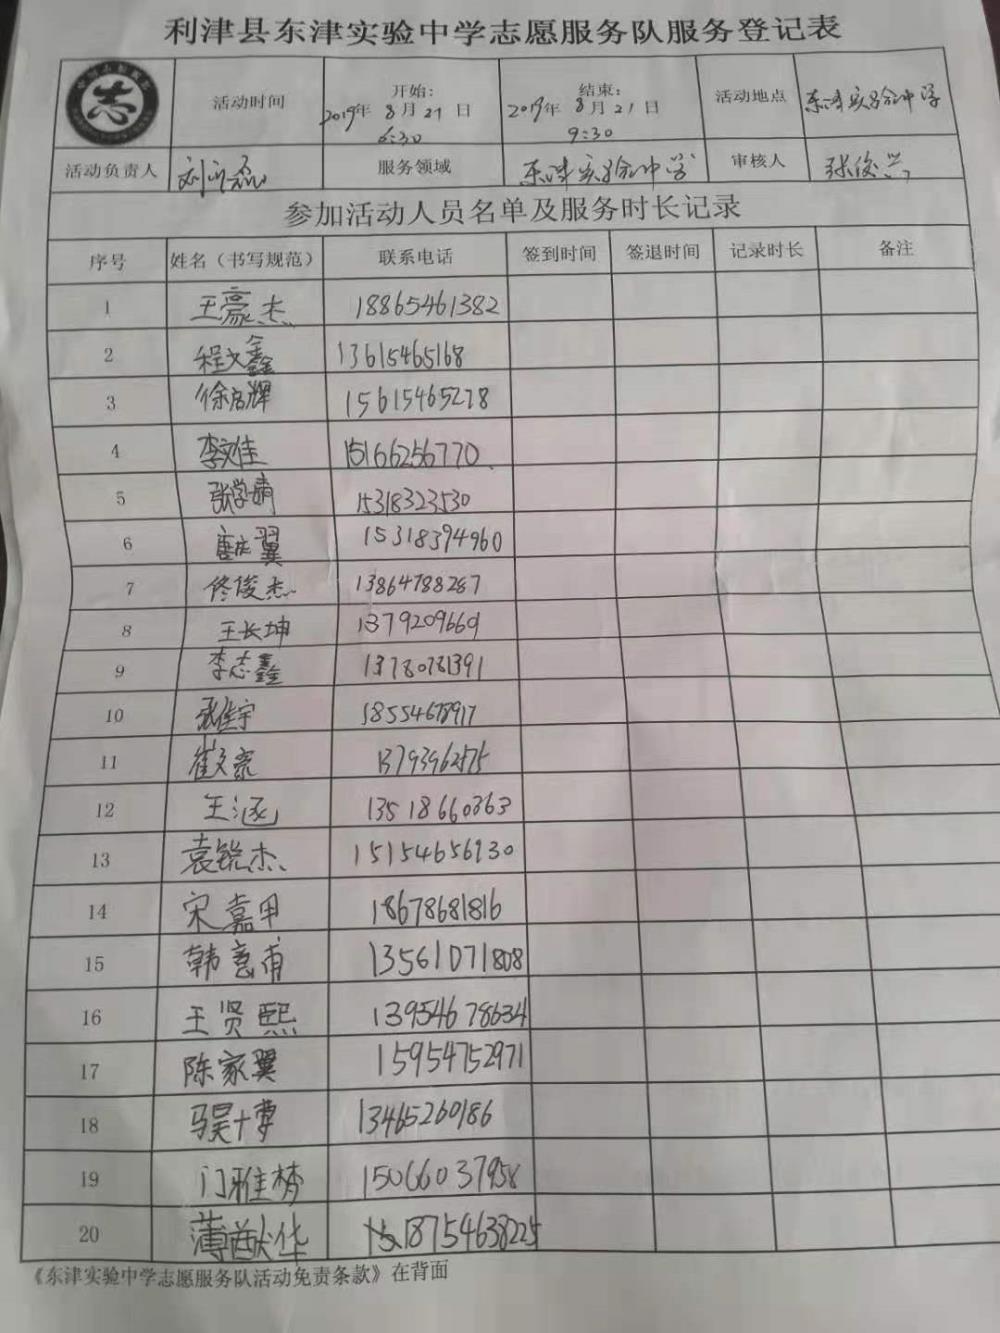 利津县东津实验中学志愿服务队服务登记表
志
活动时间 开始: 2019年8月21日 6:30 结束: 2019年8月21日 9:30 活动地点 东津实验中学
活动负责人 服务领域 东津实验中学 审核人 张俊兴
参加活动人员名单及服务时长记录
序号 姓名（书写规范） 联系电话 签到时间 签退时间 记录时长 备注
1 王豪杰 18865461382
2 程文鑫 13615465168
3 徐启辉 15615465278
4 李文佳 15166256770
5 张学婧 15318323530
6 唐庆翼 15318394960
7 佟俊杰 13864788287
8 王长坤 1379209669
9 李志鑫 13780781391
10 张佳宇 18554678917
11 崔文豪 13793962575
12 王涵 13518660363
13 袁锐杰 15154656930
14 宋嘉甲 18678681816
15 韩意甫 13561071808
16 王贤熙 13954678634
17 陈家翼 15954752971
18 13465260186
19 门雅梦 15066037958
20 薄猷华 18754638225
《东津实验中学志愿服务队活动免责条款》在背面